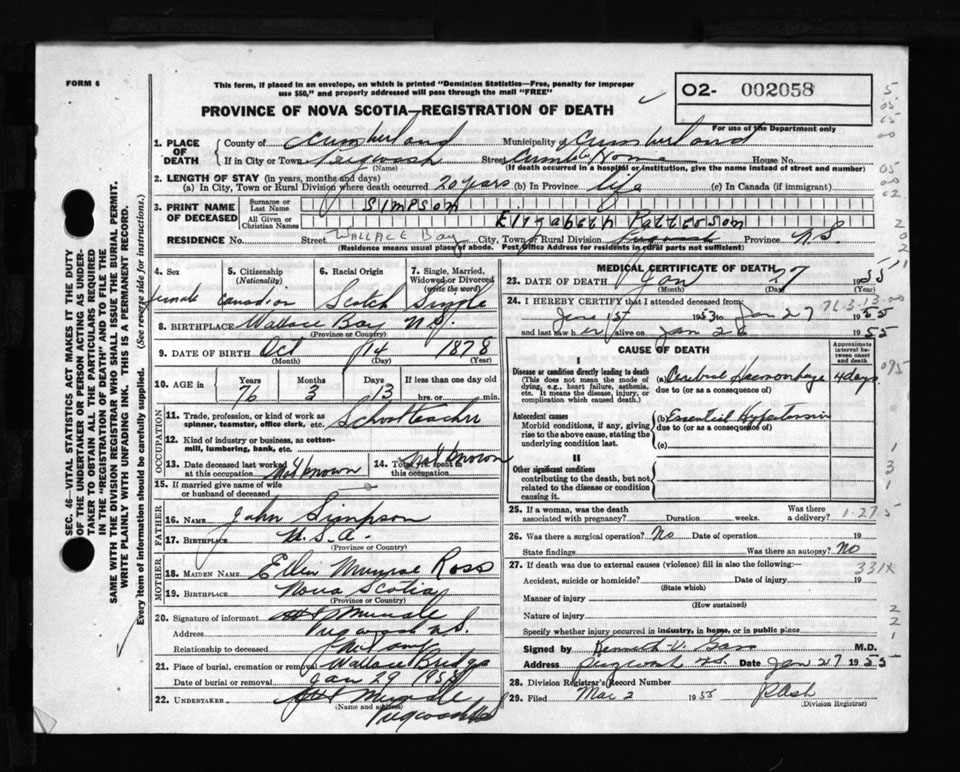 FORM 6
This form, if placed in an envelope, on which is printed "Dominion Statistics—Free, penalty for improper
use $50," and properly addressed will pass through the mail "FREE"
PROVINCE OF NOVA SCOTIA—REGISTRATION OF DEATH
O2- 002058
For use of the Department only
1. PLACE OF DEATH
County of Cumberland Municipality of Cumberland
If in City or Town Pugwash Street Home House No.
(Name) (If death occurred in a hospital or institution, give the name instead of street and number)
2. LENGTH OF STAY (in years, months and days)
(a) In City, Town or Rural Division where death occurred 20 years (b) In Province life (c) In Canada (if immigrant)
3. PRINT NAME OF DECEASED
Surname or Last Name SIMPSON
All Given or Christian Names Elizabeth Patterson
RESIDENCE No. Street WALLACE Bay City, Town or Rural Division Pugwash Province N.S.
(Residence means usual place of abode. Post Office Address for residents in rural parts not sufficient)
4. Sex female
5. Citizenship (Nationality) Canadian
6. Racial Origin Scotch
7. Single, Married, Widowed or Divorced (write the word) Single
8. BIRTHPLACE Wallace Bay N.S.
(Province or Country)
9. DATE OF BIRTH Oct 14 1878
(Month) (Day) (Year)
10. AGE in Years 76 Months 3 Days 13 If less than one day old hrs. or min.
OCCUPATION
11. Trade, profession, or kind of work as spinner, teamster, office clerk, etc. School teacher
12. Kind of industry or business, as cotton-mill, lumbering, bank, etc.
13. Date deceased last worked at this occupation Not known
14. Total yrs. spent in this occupation Not known
15. If married give name of wife or husband of deceased
FATHER
16. NAME John Simpson
17. BIRTHPLACE
(Province or Country)
MOTHER
18. MAIDEN NAME Ellen Munroe Ross
19. BIRTHPLACE Nova Scotia
(Province or Country)
20. Signature of informant
Address Pugwash N.S.
Relationship to deceased
21. Place of burial, cremation or removal Wallace Bridge
Date of burial or removal Jan 29 1955
22. UNDERTAKER
(Name and address)
Pugwash NS
MEDICAL CERTIFICATE OF DEATH
23. DATE OF DEATH Jan 27 1955
(Month) (Day)
24. I HEREBY CERTIFY that I attended deceased from
1st 1953 to Jan 27 1955
and last saw her alive on Jan 26 1955
CAUSE OF DEATH
Approximate interval between onset and death
I
Disease or condition directly leading to death
(This does not mean the mode of dying, e.g., heart failure, asthenia, etc. It means the disease, injury, or complication which caused death.)
(a) Cerebral Haemorrhage 4 days
due to (or as a consequence of)
Antecedent causes
Morbid conditions, if any, giving rise to the above cause, stating the underlying condition last.
(b) Essential Hypertension
due to (or as a consequence of)
(c)
II
Other significant conditions
contributing to the death, but not related to the disease or condition causing it.
25. If a woman, was the death associated with pregnancy? Duration weeks. Was there a delivery? 1-27-5
26. Was there a surgical operation? No Date of operation 19
State findings Was there an autopsy? NO
27. If death was due to external causes (violence) fill in also the following:— 331X
Accident, suicide or homicide? Date of injury 19
(State which)
Manner of injury
(How sustained)
Nature of injury
Specify whether injury occurred in industry, in home, or in public place
Signed by Kenneth M.D.
Address Pugwash NS. Date Jan 27 1955
28. Division Registrar's Record Number
29. Filed Mar 2 1955
(Division Registrar)
SEC. 46—VITAL STATISTICS ACT MAKES IT THE DUTY
OF THE UNDERTAKER OR PERSON ACTING AS UNDER-
TAKER TO OBTAIN ALL THE PARTICULARS REQUIRED
IN THE "REGISTRATION OF DEATH" AND TO FILE THE
SAME WITH THE DIVISION REGISTRAR WHO SHALL ISSUE THE BURIAL PERMIT.
WRITE PLAINLY WITH UNFADING INK. THIS IS A PERMANENT RECORD.
Every item of information should be carefully supplied. (See reverse side for instructions.)